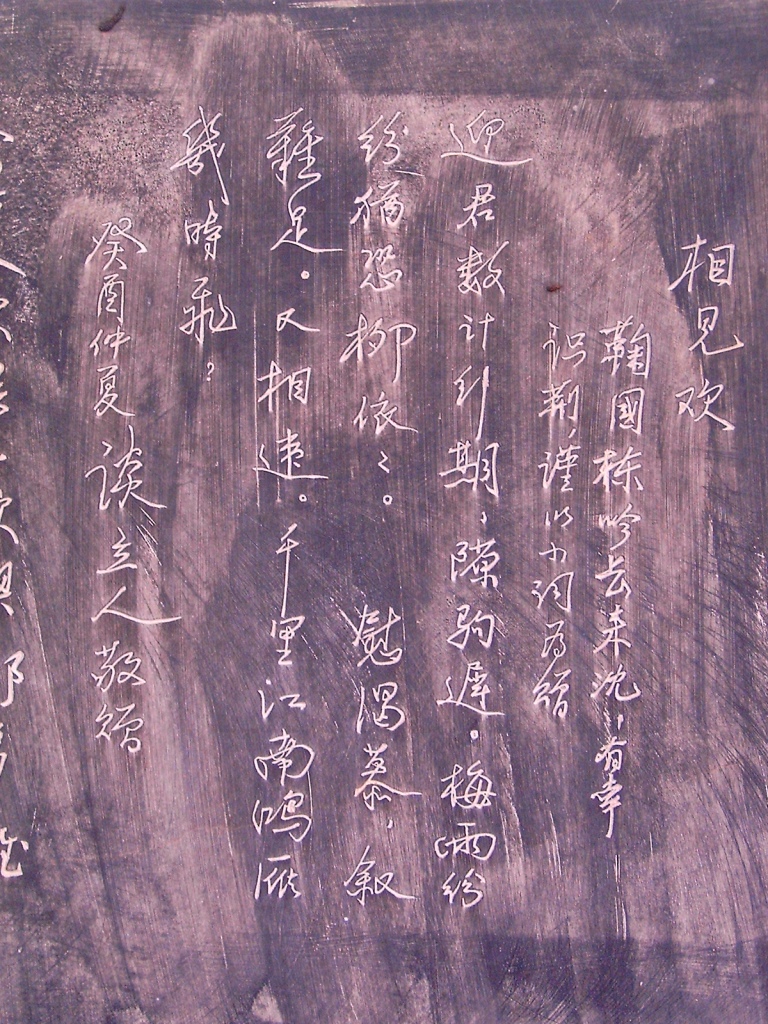 相見欢
鞠國栋吟长来沈，有幸
识荆，谨以小词为赠
迎君数计行期，隙驹遲。梅雨纷
纷犹恐柳依〻。 慰渴慕，叙
難足。又相違。千里江南鸿雁
幾時飛？
癸酉仲夏 谈立人敬赠